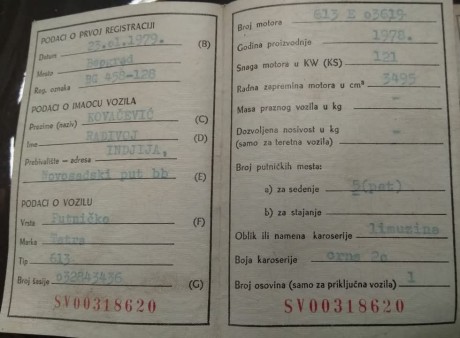 PODACI O PRVOJ REGISTRACIJI
Datum 23.01.1979. (B)
Mesto Beograd
Reg. oznaka BG 458-128
PODACI O IMAOCU VOZILA
Prezime (naziv) KOVAČEVIĆ (C)
Ime RADIVOJ (D)
Prebivalište – adresa INDJIJA,
Novosadski put bb (E)
PODACI O VOZILU
Vrsta Putničko (F)
Marka Tatra
Tip 613
Broj šasije 032843436 (G)
SV00318620
Broj motora 613 E 03619
Godina proizvodnje 1978.
Snaga motora u KW (KS) 121
Radna zapremina motora u cm³ 3495
Masa praznog vozila u kg -
Dozvoljena nosivost u kg -
(samo za teretna vozila)
Broj putničkih mesta:
a) za sedenje 5(pet)
b) za stajanje
Oblik ili namena karoserije limuzina
Boja karoserije crna
Broj osovina (samo za priključna vozila) 1
SV00318620